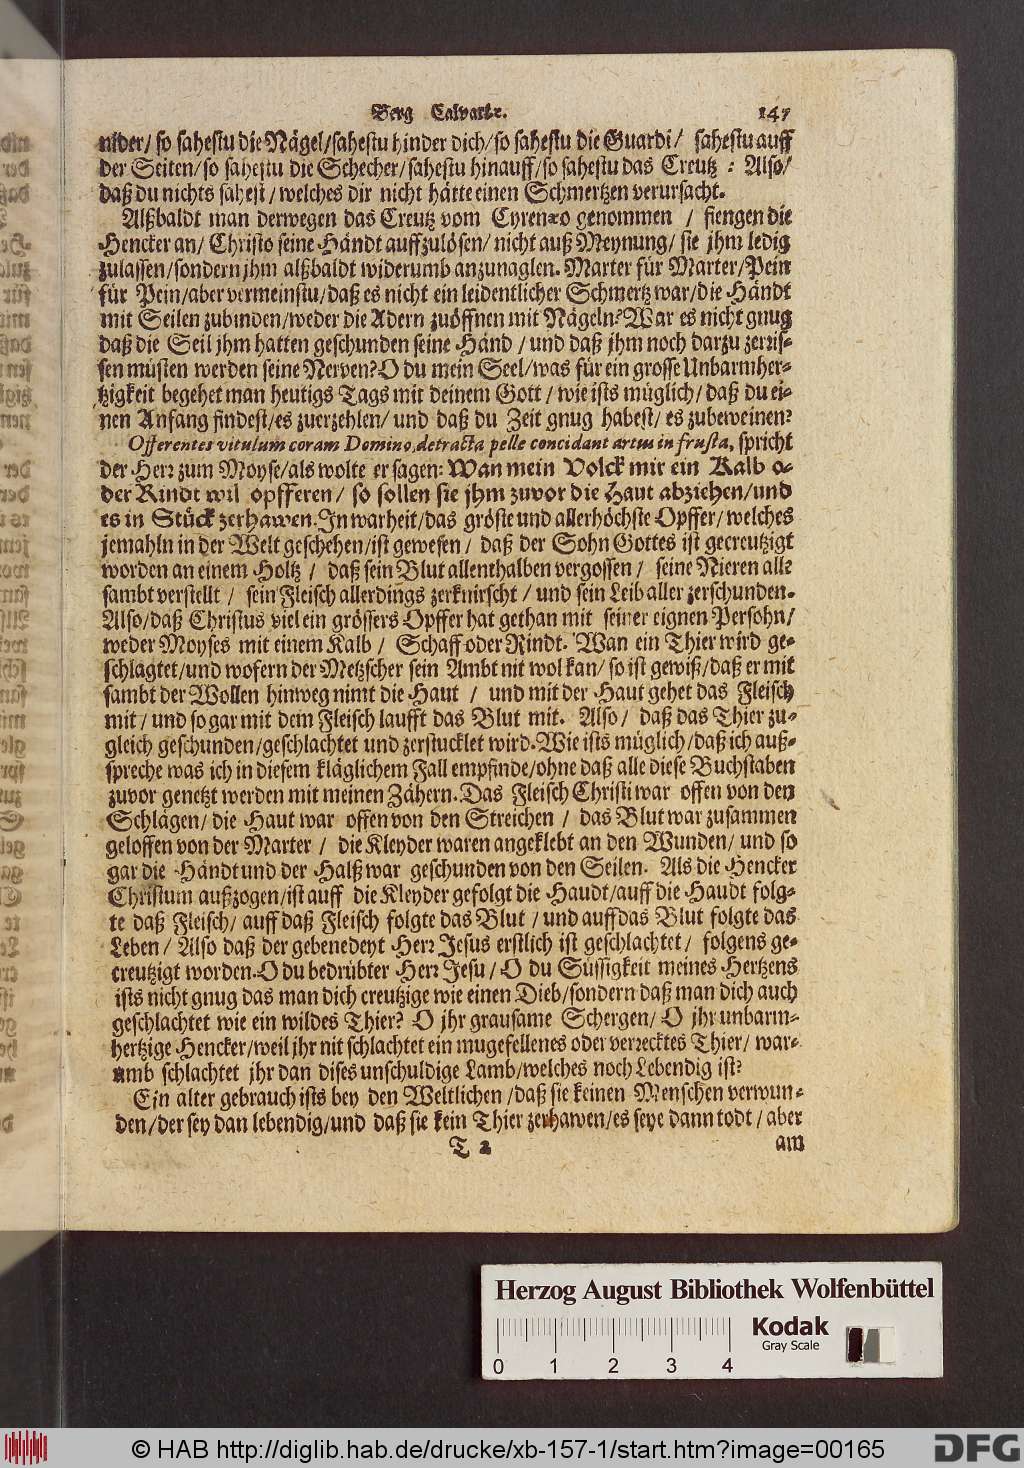 Berg Calvariæ. 147
nider/ so sahestu die Nägel/sahestu hinder dich/so sahestu die Guardi/ sahestu auff
der Seiten/so sahestu die Schecher/sahestu hinauff/so sahestu das Creutz : Also/
daß du nichts sahest/welches dir nicht hätte einen Schmertzen verursacht.
Alßbaldt man derwegen das Creutz vom Cyrenæo genommen / fiengen die
Hencker an/ Christo seine Händt auffzulösen/ nicht auß Meynung/ sie jhm ledig
zulassen/sondern jhm alßbaldt widerumb anzunaglen. Marter für Marter/Pein
für Pein/aber vermeinstu/daß es nicht ein leidentlicher Schmertz war/die Händt
mit Seilen zubinden/weder die Adern zuöffnen mit Nägeln? War es nicht gnug
daß die Seil jhm hatten geschunden seine Händ / und daß jhm noch darzu zerris-
sen müsten werden seine Nerven? O du mein Seel/was für ein grosse Unbarmher-
tzigkeit begehet man heutigs Tags mit deinem Gott / wie ists müglich/ daß du ei-
nen Anfang findest/es zuerzehlen/ und daß du Zeit gnug habest/ es zubeweinen?
Offerentes vitulum coram Domino, detracta pelle concidant artus in frusta, spricht
der Herr zum Moyse/als wolte er sagen: Wan mein Volck mir ein Kalb o-
der Rindt wil opfferen/ so sollen sie jhm zuvor die Haut abziehen/und
es in Stück zerhawen. In warheit/das gröste und allerhöchste Opffer/welches
jemahln in der Welt geschehen/ist gewesen/ daß der Sohn Gottes ist gecreutzigt
worden an einem Holtz / daß sein Blut allenthalben vergossen/ seine Nieren alle
sambt verstellt / sein Fleisch allerdings zerknirscht / und sein Leib aller zerschunden.
Also/daß Christus viel ein grössers Opffer hat gethan mit seiner eignen Persohn/
weder Moyses mit einem Kalb / Schaff oder Rindt. Wan ein Thier wird ge-
schlagtet/und wofern der Metzscher sein Ambt nit wol kan/ so ist gewiß/daß er mit
sambt der Wollen hinweg nimt die Haut / und mit der Haut gehet das Fleisch
mit/ und so gar mit dem Fleisch laufft das Blut mit. Also/ daß das Thier zu-
gleich geschunden/geschlachtet und zerstucklet wird. Wie ists müglich/daß ich auß-
spreche was ich in diesem kläglichem Fall empfinde/ohne daß alle diese Buchstaben
zuvor genetzt werden mit meinen Zähern. Das Fleisch Christi war offen von den
Schlägen/ die Haut war offen von den Streichen / das Blut war zusammen
geloffen von der Marter / die Kleyder waren angeklebt an den Wunden/ und so
gar die Händt und der Halß war geschunden von den Seilen. Als die Hencker
Christum außzogen/ist auff die Kleyder gefolgt die Haudt/auff die Haudt folg-
te daß Fleisch/ auff daß Fleisch folgte das Blut / und auff das Blut folgte das
Leben/ Also daß der gebenedeyt Herr Jesus erstlich ist geschlachtet/ folgens ge-
creutzigt worden. O du bedrübter Herr Jesu/ O du Süssigkeit meines Hertzens
ists nicht gnug das man dich creutzige wie einen Dieb/sondern daß man dich auch
geschlachtet wie ein wildes Thier? O jhr grausame Schergen/ O jhr unbarm-
hertzige Hencker/weil jhr nit schlachtet ein mugefellenes oder verrecktes Thier/ war-
umb schlachtet jhr dan dises unschuldige Lamb/welches noch Lebendig ist?
Ein alter gebrauch ists bey den Weltlichen/daß sie keinen Menschen verwun-
den/der sey dan lebendig/und daß sie kein Thier zerhawen/es seye dann todt/aber
T 2 am
Herzog August Bibliothek Wolfenbüttel
Kodak
Gray Scale
0 1 2 3 4
© HAB http://diglib.hab.de/drucke/xb-157-1/start.htm?image=00165
DFG